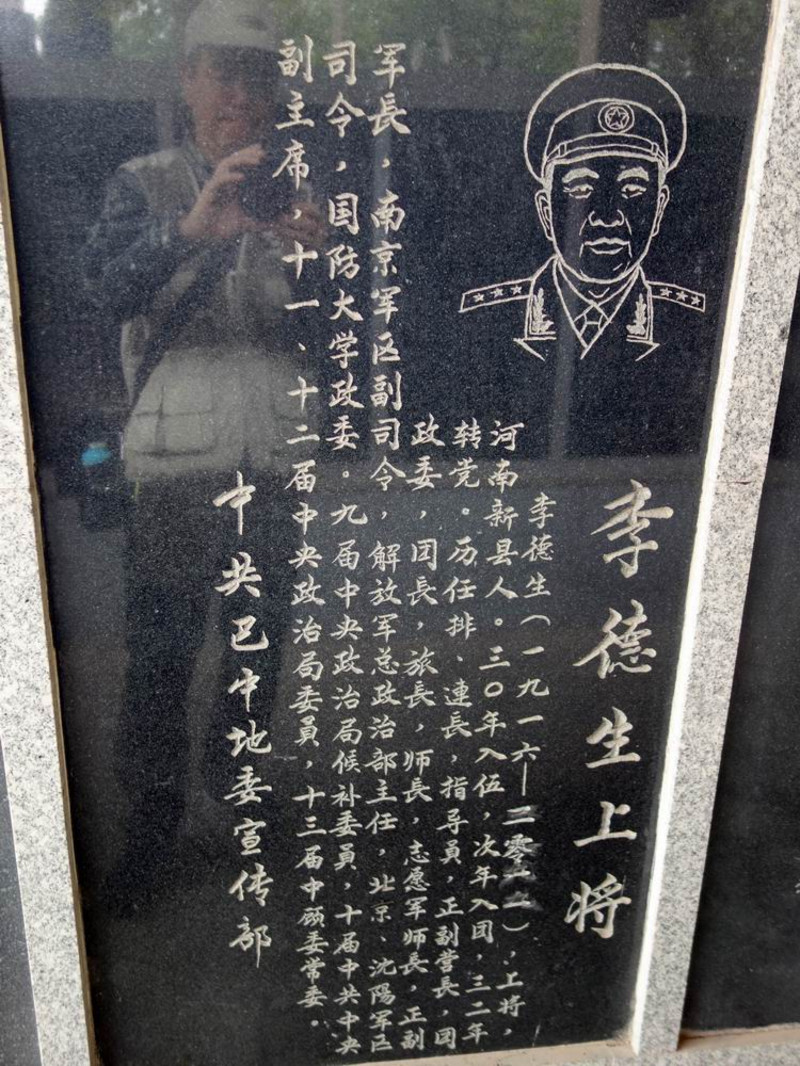 李德生上将
李德生（一九一六—二零一一），上将，
河南新县人。三〇年入伍，次年入团，三二年
转党。历任排、連長，指导員，正副营長，团
政委，团長，旅長，师長，志愿军师長，正副
军長，南京军区副司令，解放军总政治部主任，北京、沈陽军区
司令，国防大学政委。九届中央政治局候补委員，十届中共中央
副主席，十一、十二届中央政治局委員，十三届中顾委常委。
中共巴中地委宣传部